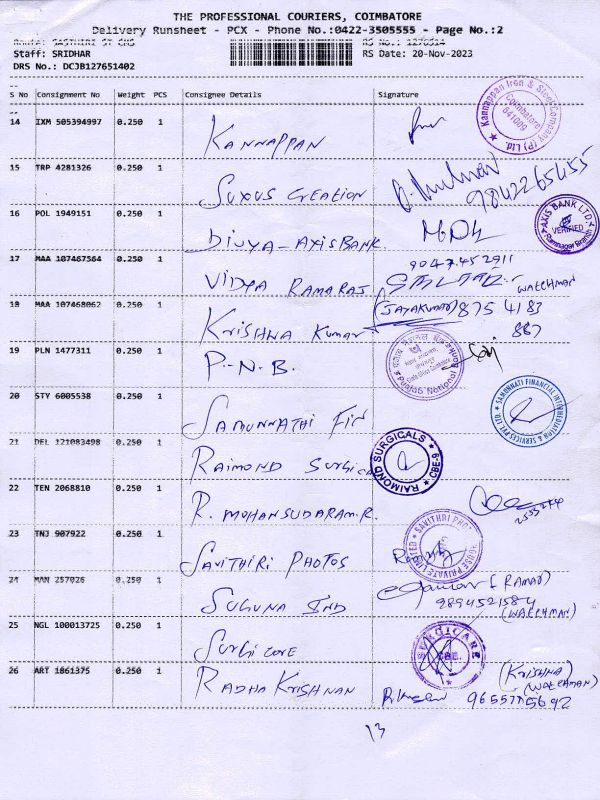 THE PROFESSIONAL COURIERS, COIMBATORE
Delivery Runsheet - PCX - Phone No.:0422-3505555 - Page No.:2
Staff: SRIDHAR
RS Date: 20-Nov-2023
DRS No.: DCJB127651402
S No Consignment No Weight PCS Consignee Details Signature
14 IXM 505394997 0.250 1 KANNAPPAN
Kannappan Iron & Steel Company (P) Ltd. Coimbatore 641009
15 TRP 4281326 0.250 1 SUXUS CREATION
9842265455
16 POL 1949151 0.250 1 DIVYA-AXISBANK
AXIS BANK LTD VERIFIED Ramnagar Branch
17 MAA 107467564 0.250 1 VIDYA RAMARAJ
9047452911
WATCHMAN
18 MAA 107468062 0.250 1 KRISHNA KUMAR
(JAYAKUMAR) 875 4183
887
19 PLN 1477311 0.250 1 P.N.B.
Punjab National Bank
20 STY 6005538 0.250 1 SAMUNNATHI FIN
SAMUNNATI FINANCIAL INTERMEDIATION & SERVICES PVT. LTD
21 DEL 121083498 0.250 1 RAIMOND SURGICA
RAIMOND SURGICALS CBE-9
22 TEN 2068810 0.250 1 R. MOHANSUDARAM.R.
23 TNJ 907922 0.250 1 SAVITHIRI PHOTOS
SAVITHRI PHOTO HOUSE PRIVATE LIMITED
24 MAN 257026 0.250 1 SUGUNA IND
(RAMAR)
9894521584
(WATCHMAN)
25 NGL 100013725 0.250 1 SURGI CARE
SURGICARE CBE.
26 ART 1861375 0.250 1 RADHA KRISHNAN
(KRISHNA)
(WATCHMAN)
13